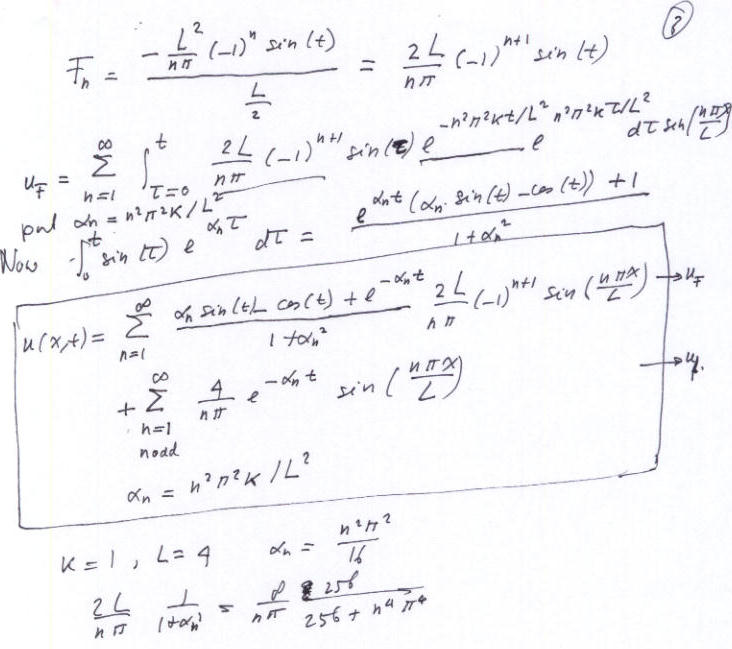 3
F_n = (-L²/nπ (-1)ⁿ sin(t)) / (L/2) = 2L/nπ (-1)ⁿ⁺¹ sin(t)
u_F = ∑_{n=1}^{∞} ∫_{τ=0}^{t} 2L/nπ (-1)ⁿ⁺¹ sin(τ) e^{-n²π²kt/L²} e^{n²π²kτ/L²} dτ sin(nπx/L)
put αn = n²π²K/L²
Now ∫_0^t sin(τ) e^{αnτ} dτ = (e^{αnt}(αn sin(t) - cos(t)) + 1) / (1+αn²)
u(x,t) = ∑_{n=1}^{∞} (αn sin(t) - cos(t) + e^{-αnt}) / (1+αn²) 2L/nπ (-1)ⁿ⁺¹ sin(nπx/L) → u_F
+ ∑_{n=1, n odd}^{∞} 4/nπ e^{-αnt} sin(nπx/L) →
αn = n²π²K/L²
K = 1, L = 4 αn = n²π²/16
2L/nπ 1/(1+αn²) = 8/nπ 256/(256 + n⁴π⁴)